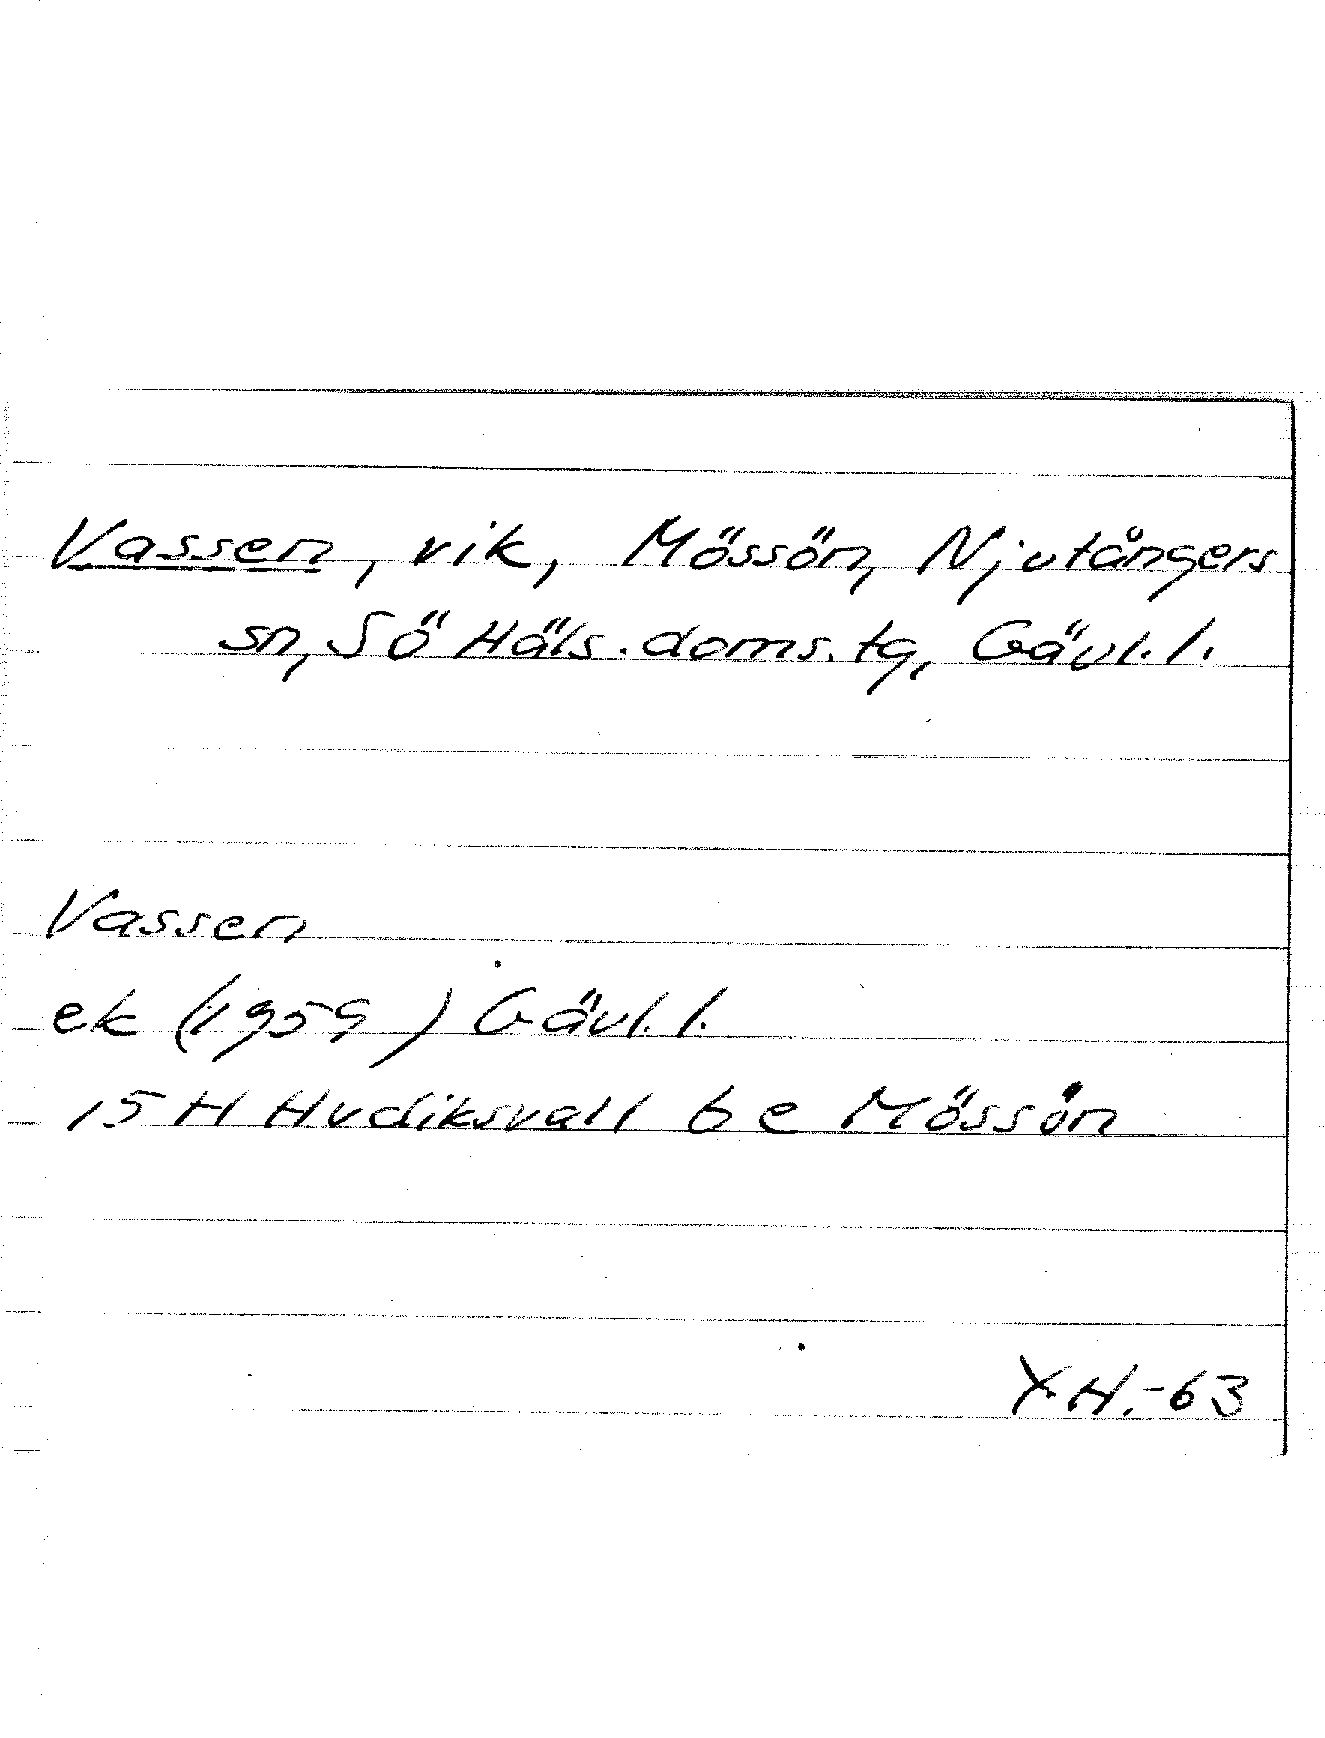 Vassen, vik, Mössön, Njutångers
sn, Sö Häls. doms. tg, Gävl. l.
Vassen
ek (1959) Gävl. l.
15 H Hudiksvall 6 e Mössön
Y H. -63